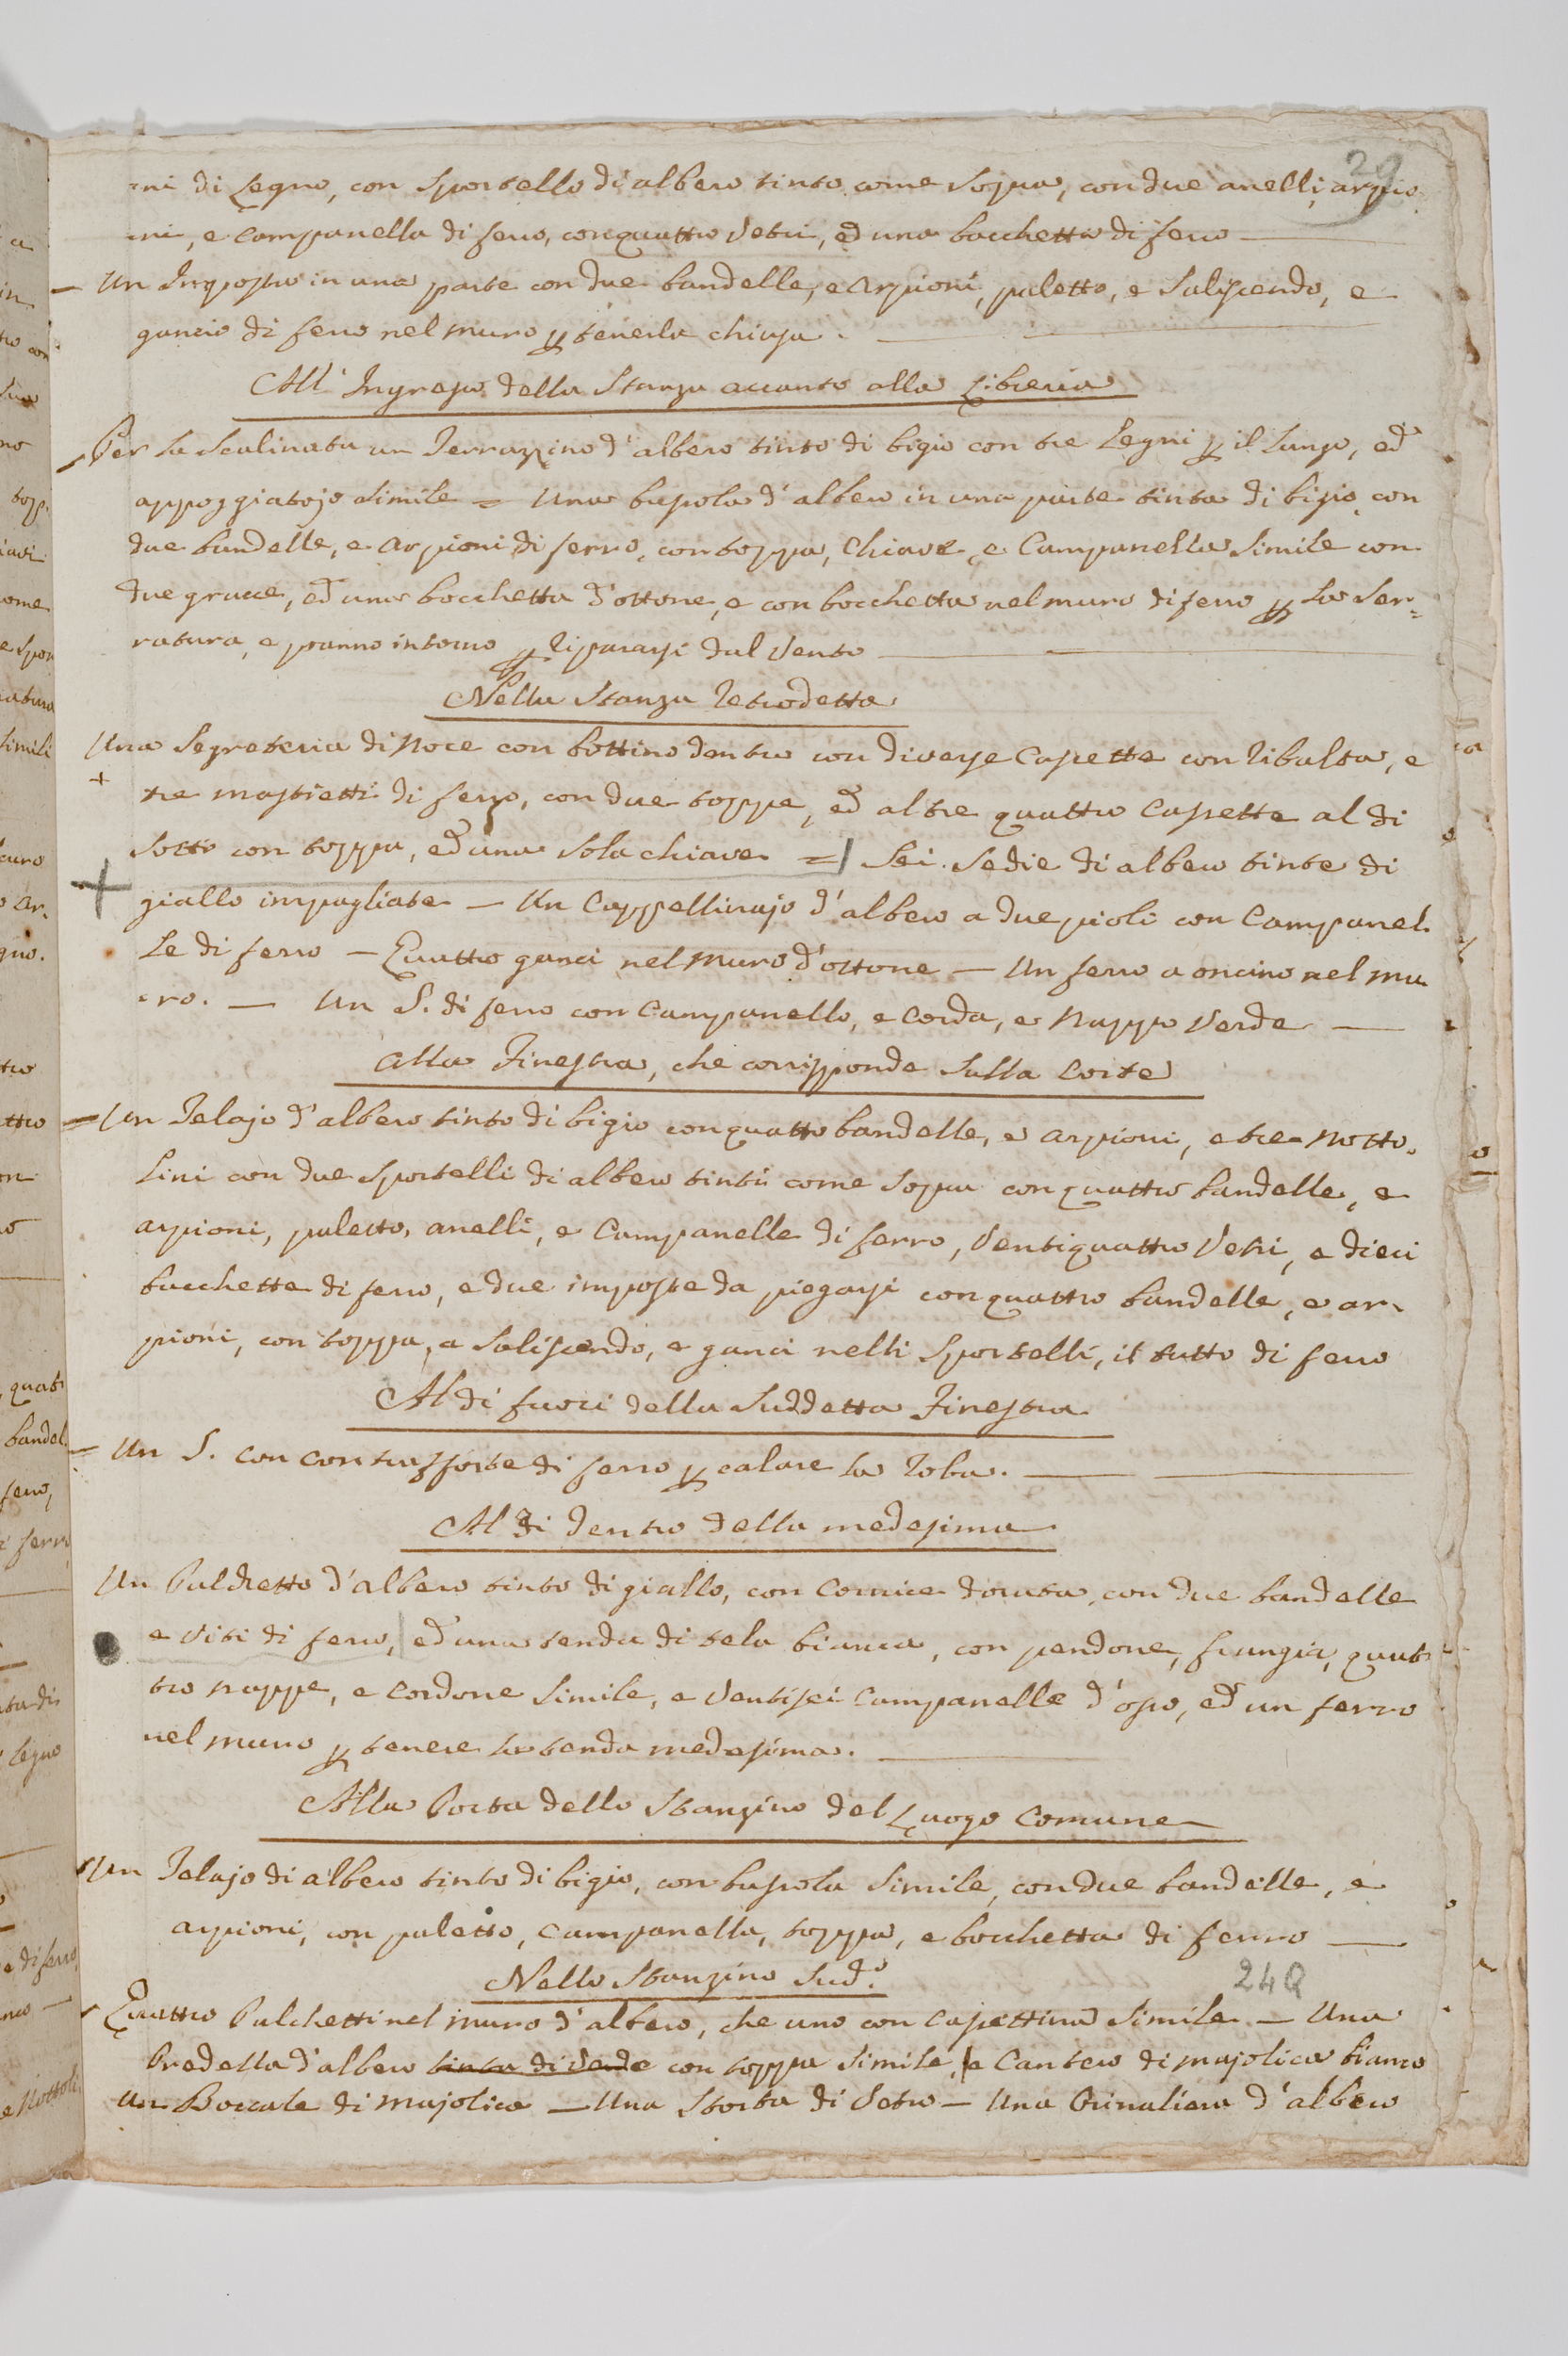 29
ni di Legno, con Sportello di albero tinto come Sopra, con due anelli, arpio
ni, e Campanella di ferro, con quattro Vetri, ed una bacchetta di ferro
Un Imposta in una parte con due bandelle, e Arpioni, paletto, e Saliscendo, e
gancio di ferro nel Muro p tenerla chiusa.
All' Ingresso della Stanza accanto alla Libreria
Per la Scalinata un Terrazzino d'albero tinto di bigio con tre Legni p il Lungo, ed
appoggiatojo Simile = Una bussola d'albero in una parte tinta di bigio, con
due bandelle, e arpioni di ferro, con toppa, Chiave, e Campanella Simile con
due grucce, ed una bocchetta d'ottone, e con bocchetta nel muro di ferro p La Ser=
ratura, e panno intorno p Ripararsi dal Vento
Nella Stanza Retrodetta
Una Segreteria di Noce con bottino dentro con diverse Cassette con Ribalta, e
+
tre mastietti di ferro, con due toppe, ed altre quattro Cassette al di
Sotto con toppa, ed una Sola chiave = Sei Sedie di albero tinte di
+ giallo impagliate — Un Cappellinajo d'albero a due pioli con Campanel.
Le di ferro — Quattro ganci nel Muro d'ottone — Un ferro a oncino nel mu
ro. — Un S. di ferro con Campanello, e Corda, e Nappa Verde —
Alla Finestra, che corrisponde Sulla Corte
= Un Telajo d'albero tinto di bigio con quattro bandelle, e arpioni, e tre Notto.
Lini con due Sportelli di albero tinti come Sopra con quattro bandelle, e
arpioni, paletto, anelli, e Campanelle di ferro, Ventiquattro Vetri, e dieci
bacchette di ferro, e due imposte da piegarsi con quattro bandelle, e ar.
pioni, con toppa, e Saliscendo, e ganci nelli Sportelli, il tutto di ferro
Al di fuori della Suddetta Finestra
= Un S. con contrafforte di ferro p calare la Roba.
Al di dentro della medesima
Un Palchetto d'albero tinto di giallo, con Cornice dorata, con due bandelle
e viti di ferro, ed una tenda di tela bianca, con pendone, frangia, quat
tro nappe, e Cordone Simile, e Ventisei Campanelle d'osso, ed un ferro
nel muro p tenere la tenda medesima.
Alla Porta dello Stanzino del Luogo Comune
Un Telajo di albero tinto di bigio, con bussola Simile, con due bandelle, e
arpioni, con paletto, Campanella, toppa, e bocchetta di ferro —
Nello Stanzino Sud.o
24Q
Quattro Palchetti nel muro d'albero, che uno con Cassettina Simile — Una
Predella d'albero tinta di Verde con toppa Simile, e Cantero di majolica bianco
Un Boccale di Majolica — Una Storta di Vetro — Una Orinaliera d'albero